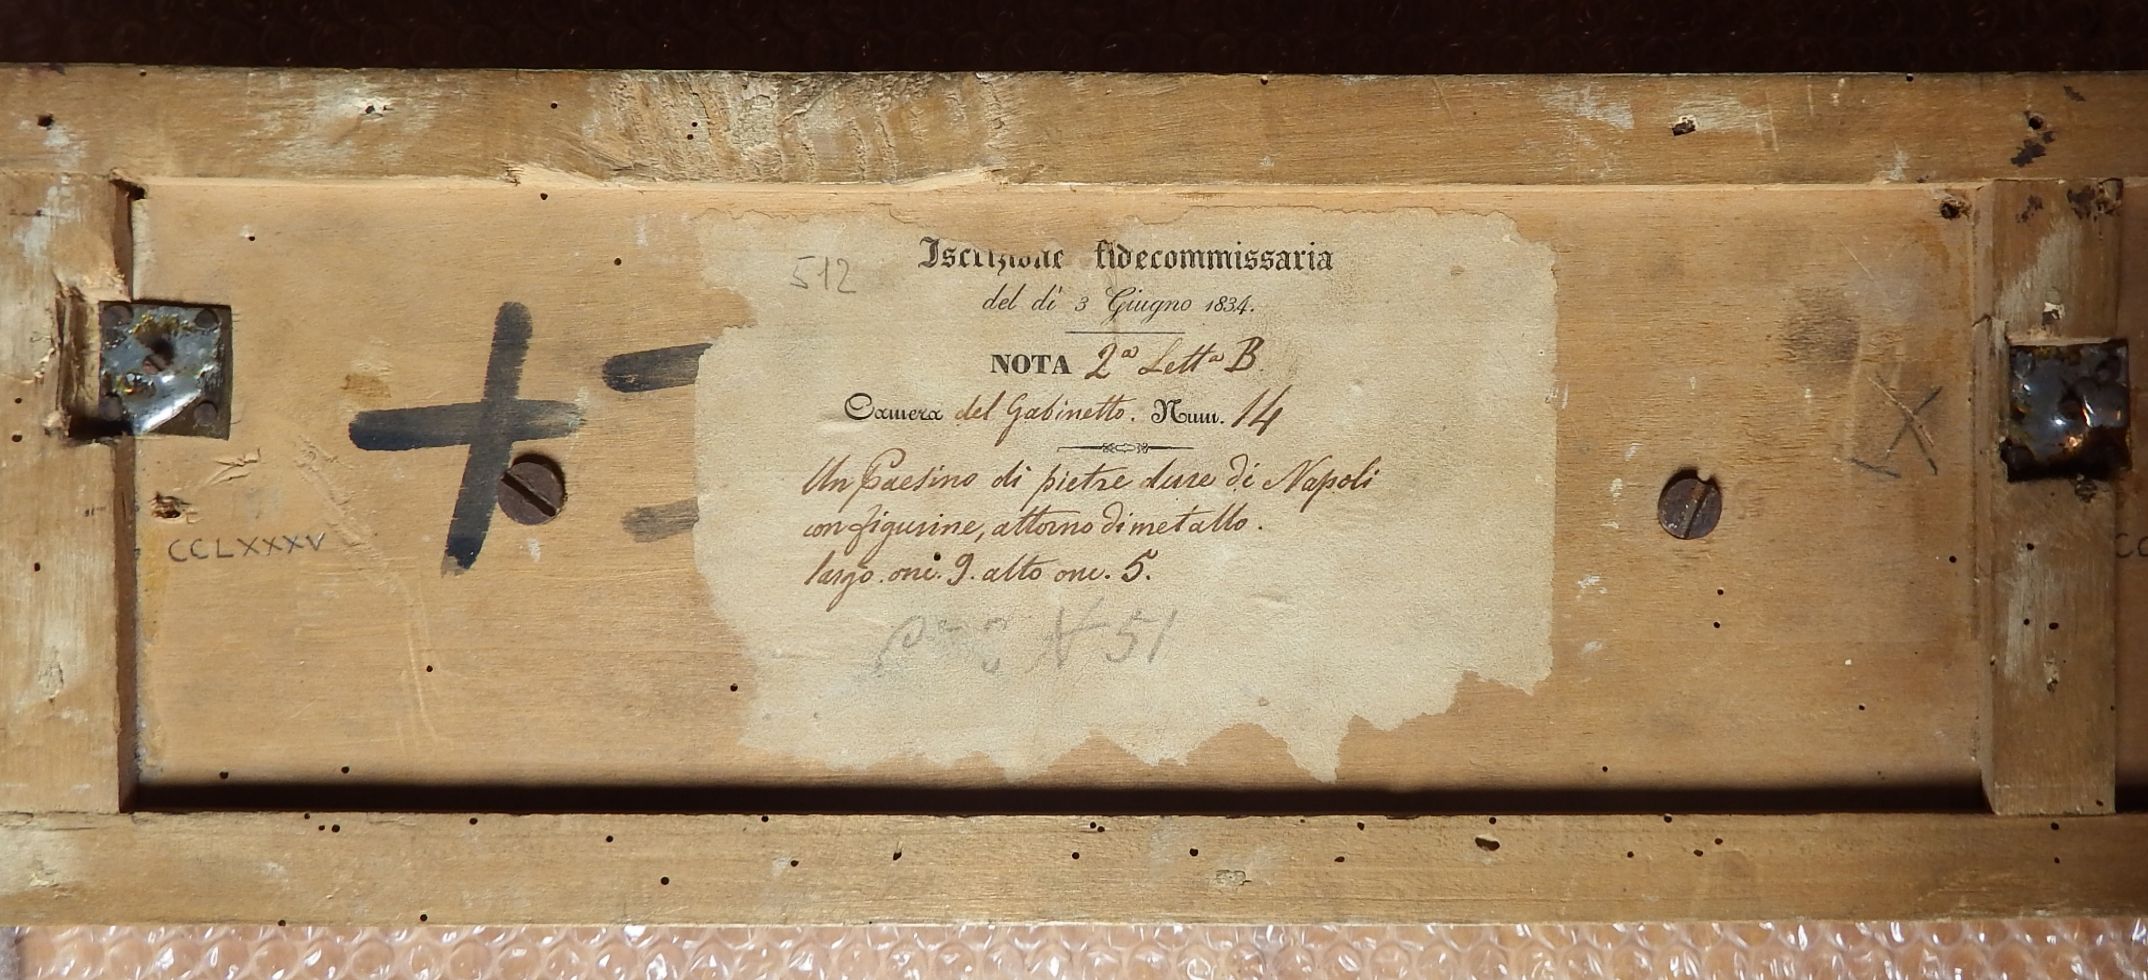 512
Iscrizione fidecommissaria
del dì 3 Giugno 1834.
NOTA 2ª Lettª B.
Camera del Gabinetto. Num. 14
Un Paesino di pietre dure di Napoli
con figurine, attorno di metallo.
largo. onc. 9. alto onc. 5.
N 51
CCLXXXV